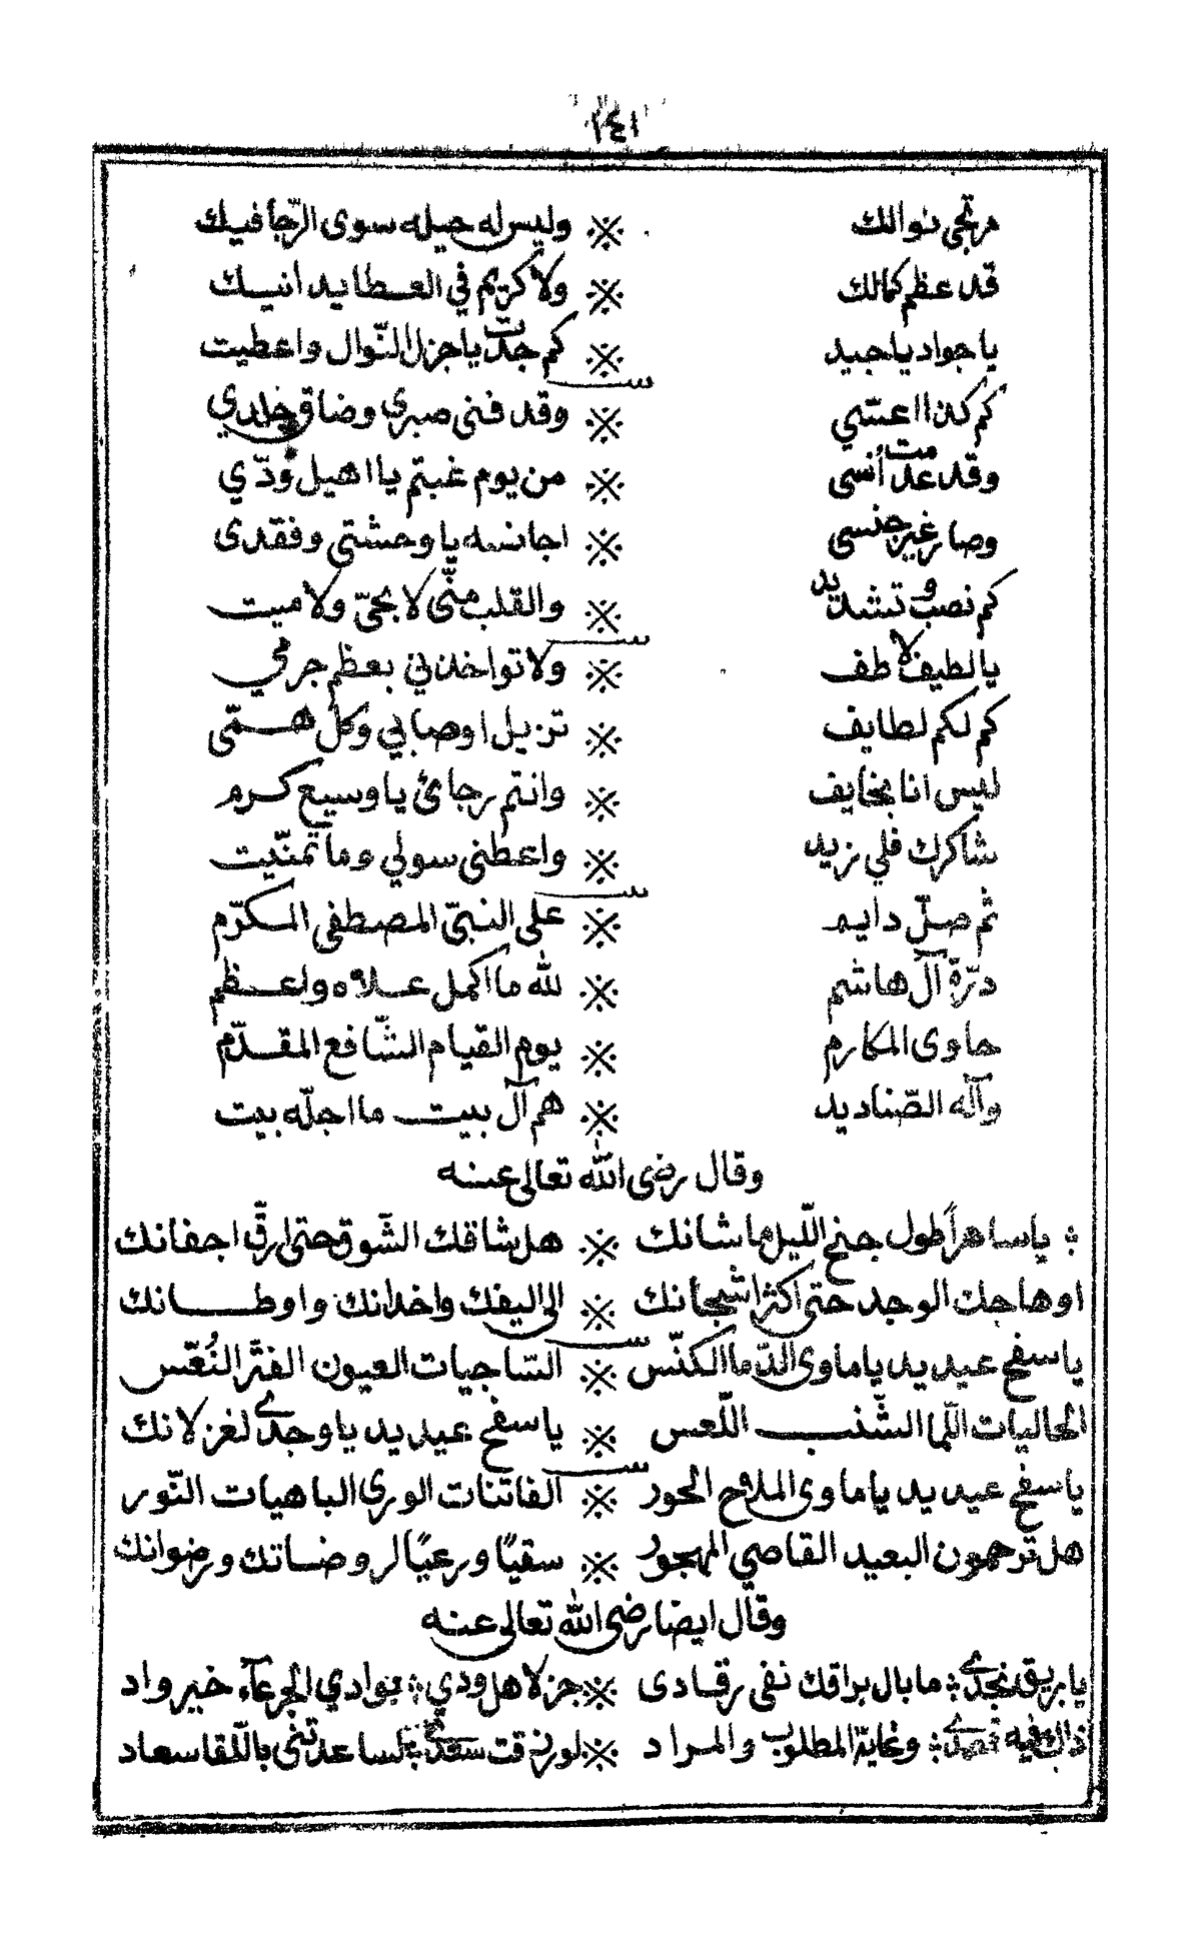 ١٤١
مرتجى نوالك ※ وليس له حيله سوى الرّجا فيك
قد عظم كمالك ※ ولا كريم في العطا يدانيك
يا جواد يا جيد ※ كم جدت يا جزل النّوال واعطيت
كم كذا اعسّي ※ وقد فنى صبري وضاق جلدي
وقد عدمت أنسى ※ من يوم غبتم يا اهيل ودّي
وصار غير جنسى ※ اجانسه يا وحشتي وفقدى
كم نصب وتشديد ※ والقلب منّى لا بحيّ ولا ميت
يا لطيف لاطف ※ ولا تواخذني بعظم جرمي
كم لكم لطايف ※ تزيل اوصابي وكل همّى
ليس انا بخايف ※ وانتم رجائ يا وسيع كرم
شاكرك فلي زيد ※ واعطنى سولي وما تمنّيت
ثم صلّ دايم ※ على النبىّ المصطفى المكرّم
درّة آل هاشم ※ لله ما اكمل علاه واعظم
حاوى المكارم ※ يوم القيام الشّافع المقدّم
وآله الصّناديد ※ هم آل بيت ما اجلّه بيت
وقال رضى الله تعالى عنه
يا ساهراً طول جنح اللّيل ما شانك ※ هل شاقك الشّوق حتى ارقّ اجفانك
او هاجك الوجد حتى اكثر اشجانك ※ الى اليفك واخدانك واوطانك
يا سفح عيديد يا ماوى الدّما الكنّس ※ السّاجيات العيون الفتّر النُعّس
الحاليات اللّما الشّنب اللّعس ※ يا سفح عيديد يا وجدي لغزلانك
يا سفح عيديد يا ماوى الملاح الحور ※ الفاتنات الورى الباهيات النّور
هل ترحمون البعيد القاصي المهجور ※ سقيًا ورعيًا لروضاتك ورضوانك
وقال ايضا رضى الله تعالى عنه
يا بريق نجدي ما بال براقك نفى رقادى ※ جز لاهل ودي بوادي الجرعاء خير واد
ذاك فيه قصدي وغاية المطلوب والمراد ※ لو رزقت سعدي لساعدتنى باللّقا سعاد